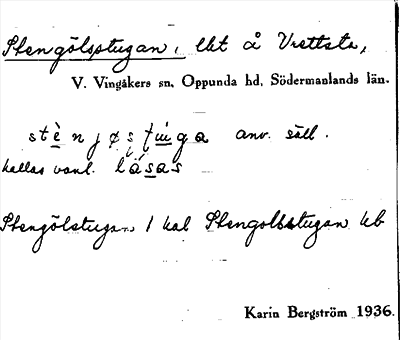 Stengölsstugan, lht å Vrettsta,
V. Vingåkers sn, Oppunda hd, Södermanlands län.
anv. säll.
kallas vanl. låsas
Stengölstugan 1 kal Stengolsstugan kb
Karin Bergström 1936.